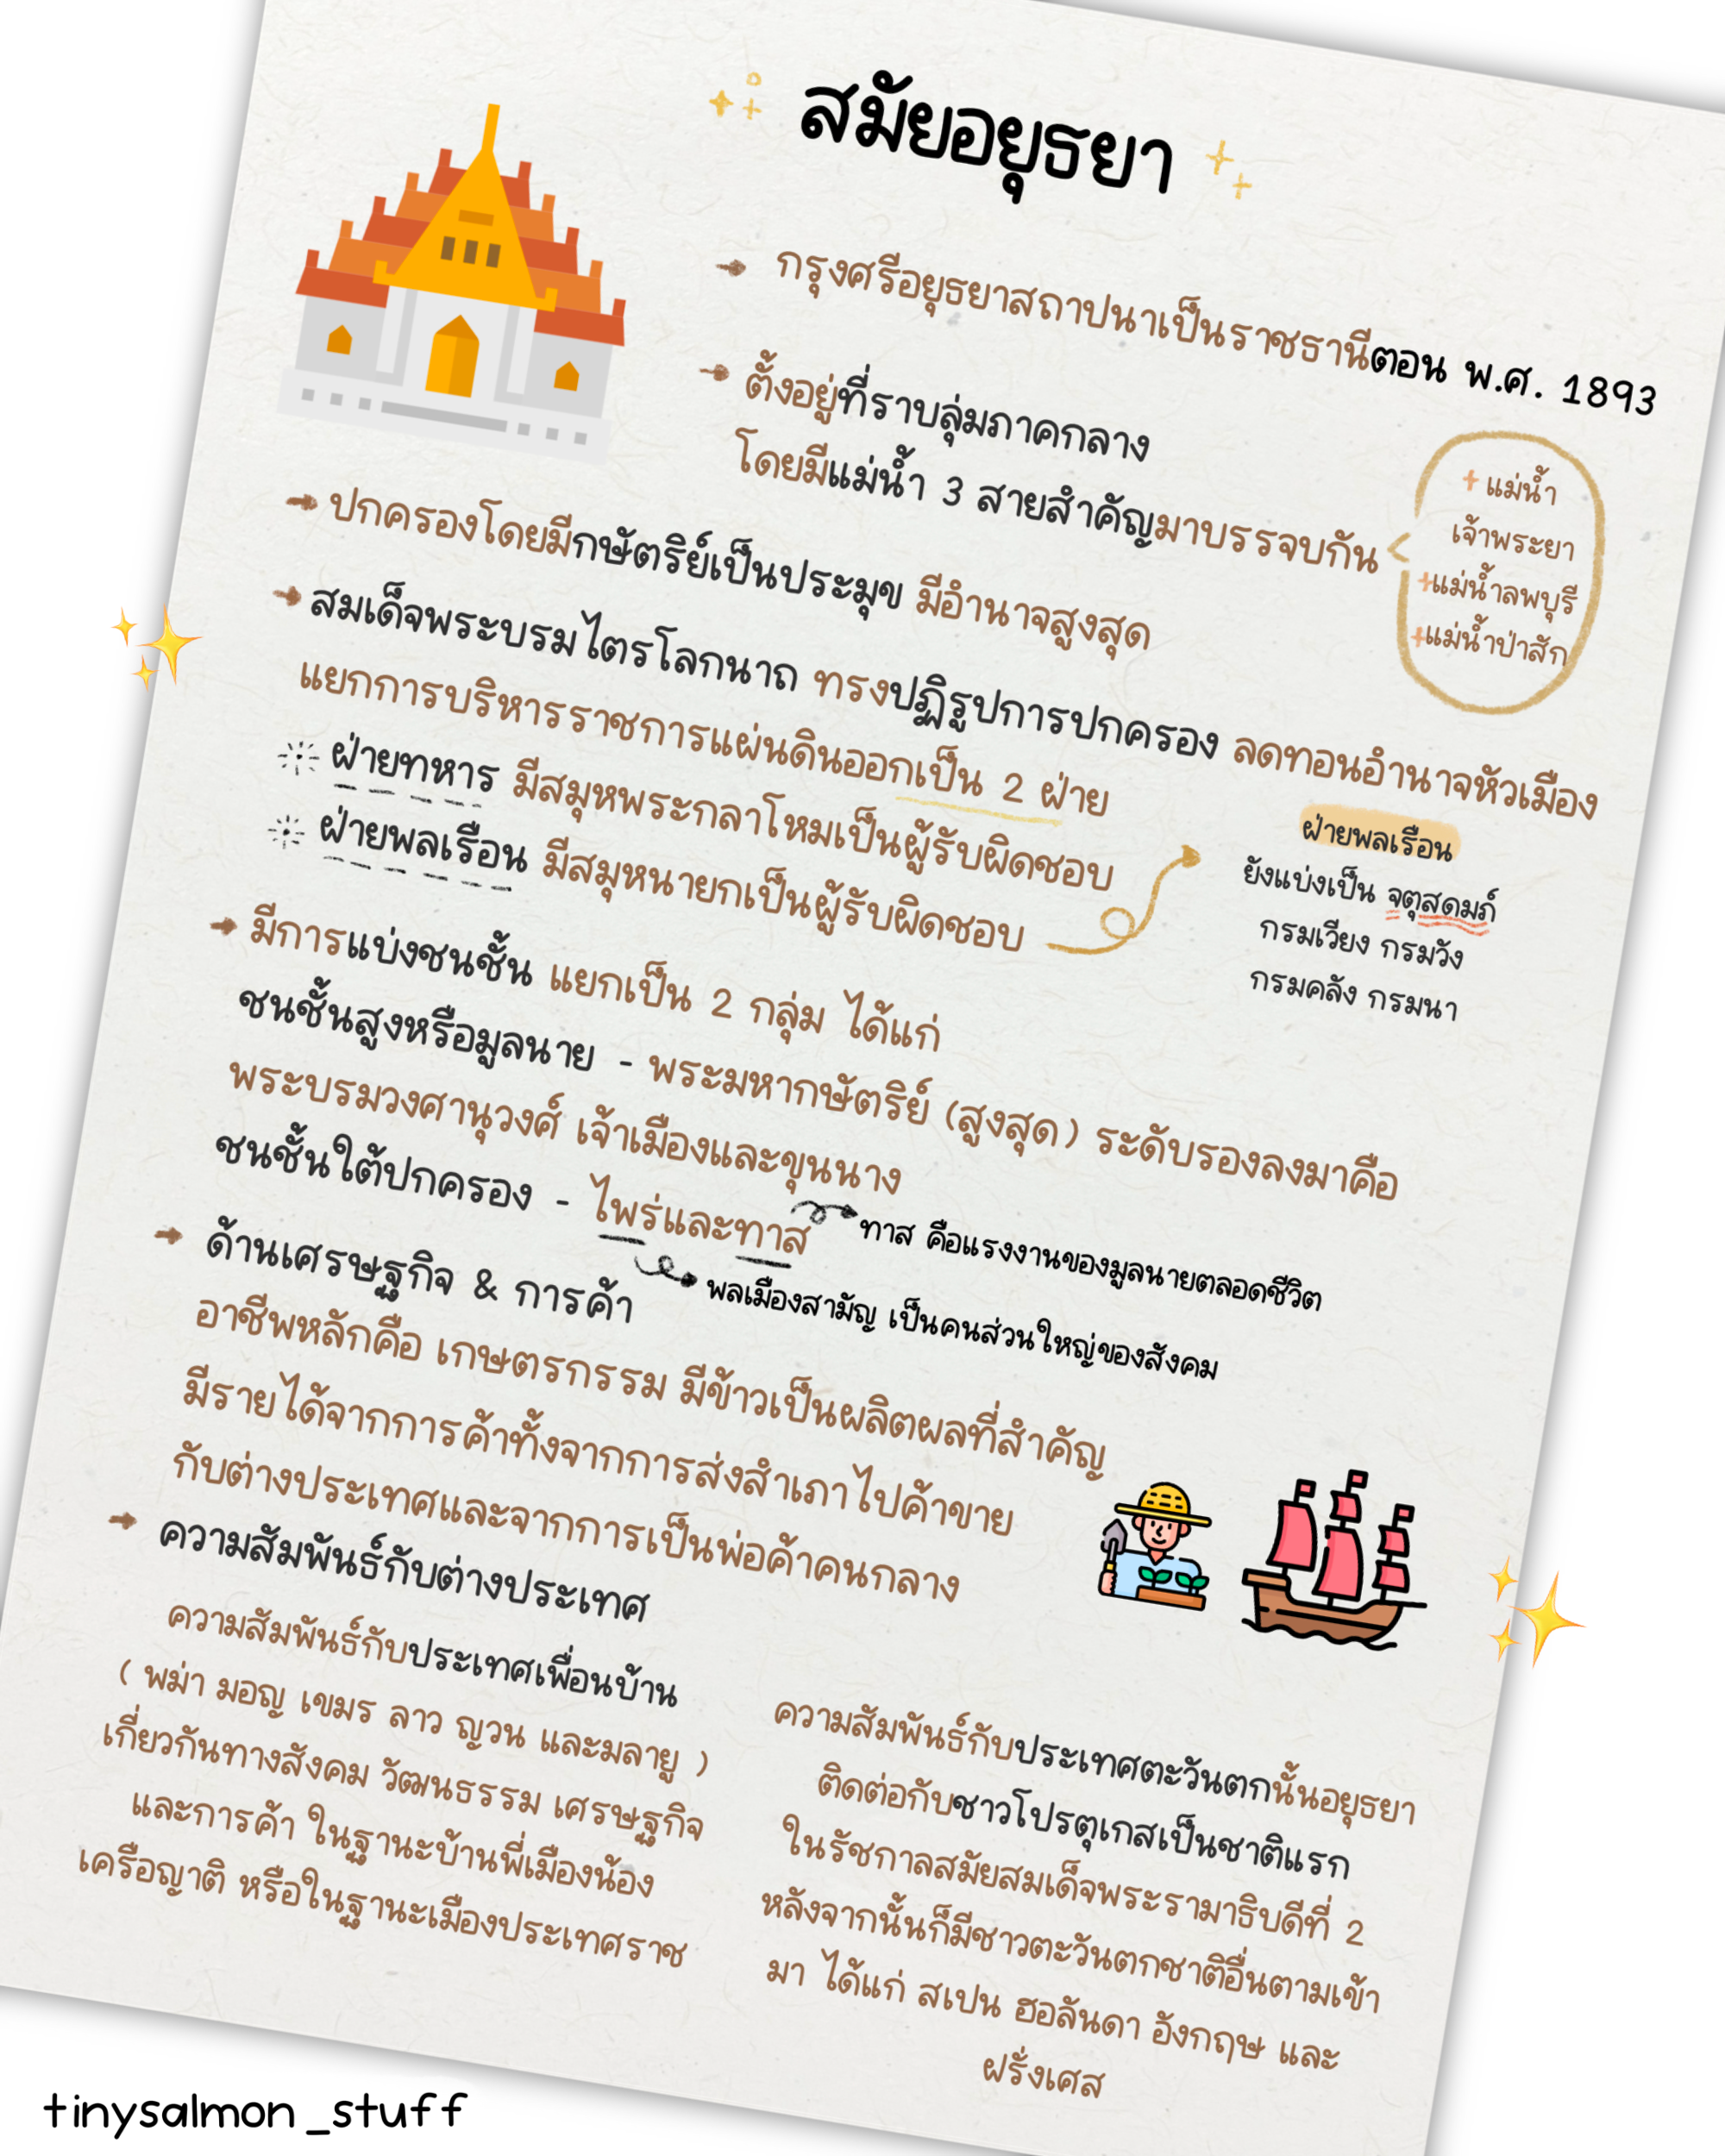 สมัยอยุธยา
กรุงศรีอยุธยาสถาปนาเป็นราชธานีตอน พ.ศ. 1893
ตั้งอยู่ที่ราบลุ่มภาคกลาง
โดยมีแม่น้ำ 3 สายสำคัญมาบรรจบกัน
+ แม่น้ำ
เจ้าพระยา
+แม่น้ำลพบุรี
+แม่น้ำป่าสัก
ปกครองโดยมีกษัตริย์เป็นประมุข มีอำนาจสูงสุด
สมเด็จพระบรมไตรโลกนาถ ทรงปฏิรูปการปกครอง ลดทอนอำนาจหัวเมือง
แยกการบริหารราชการแผ่นดินออกเป็น 2 ฝ่าย
ฝ่ายทหาร มีสมุหพระกลาโหมเป็นผู้รับผิดชอบ
ฝ่ายพลเรือน มีสมุหนายกเป็นผู้รับผิดชอบ
ฝ่ายพลเรือน
ยังแบ่งเป็น จตุสดมภ์
กรมเวียง กรมวัง
กรมคลัง กรมนา
มีการแบ่งชนชั้น แยกเป็น 2 กลุ่ม ได้แก่
ชนชั้นสูงหรือมูลนาย - พระมหากษัตริย์ (สูงสุด) ระดับรองลงมาคือ
พระบรมวงศานุวงศ์ เจ้าเมืองและขุนนาง
ชนชั้นใต้ปกครอง - ไพร่และทาส
ทาส คือแรงงานของมูลนายตลอดชีวิต
พลเมืองสามัญ เป็นคนส่วนใหญ่ของสังคม
ด้านเศรษฐกิจ & การค้า
อาชีพหลักคือ เกษตรกรรม มีข้าวเป็นผลิตผลที่สำคัญ
มีรายได้จากการค้าทั้งจากการส่งสำเภาไปค้าขาย
กับต่างประเทศและจากการเป็นพ่อค้าคนกลาง
ความสัมพันธ์กับต่างประเทศ
ความสัมพันธ์กับประเทศเพื่อนบ้าน
( พม่า มอญ เขมร ลาว ญวน และมลายู )
เกี่ยวกันทางสังคม วัฒนธรรม เศรษฐกิจ
และการค้า ในฐานะบ้านพี่เมืองน้อง
เครือญาติ หรือในฐานะเมืองประเทศราช
ความสัมพันธ์กับประเทศตะวันตกนั้นอยุธยา
ติดต่อกับชาวโปรตุเกสเป็นชาติแรก
ในรัชกาลสมัยสมเด็จพระรามาธิบดีที่ 2
หลังจากนั้นก็มีชาวตะวันตกชาติอื่นตามเข้า
มา ได้แก่ สเปน ฮอลันดา อังกฤษ และ
ฝรั่งเศส
tinysalmon_stuff